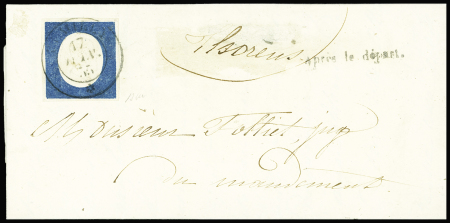 17
Thorens
Après le départ.
Monsieur Folliet, juge
du mandement